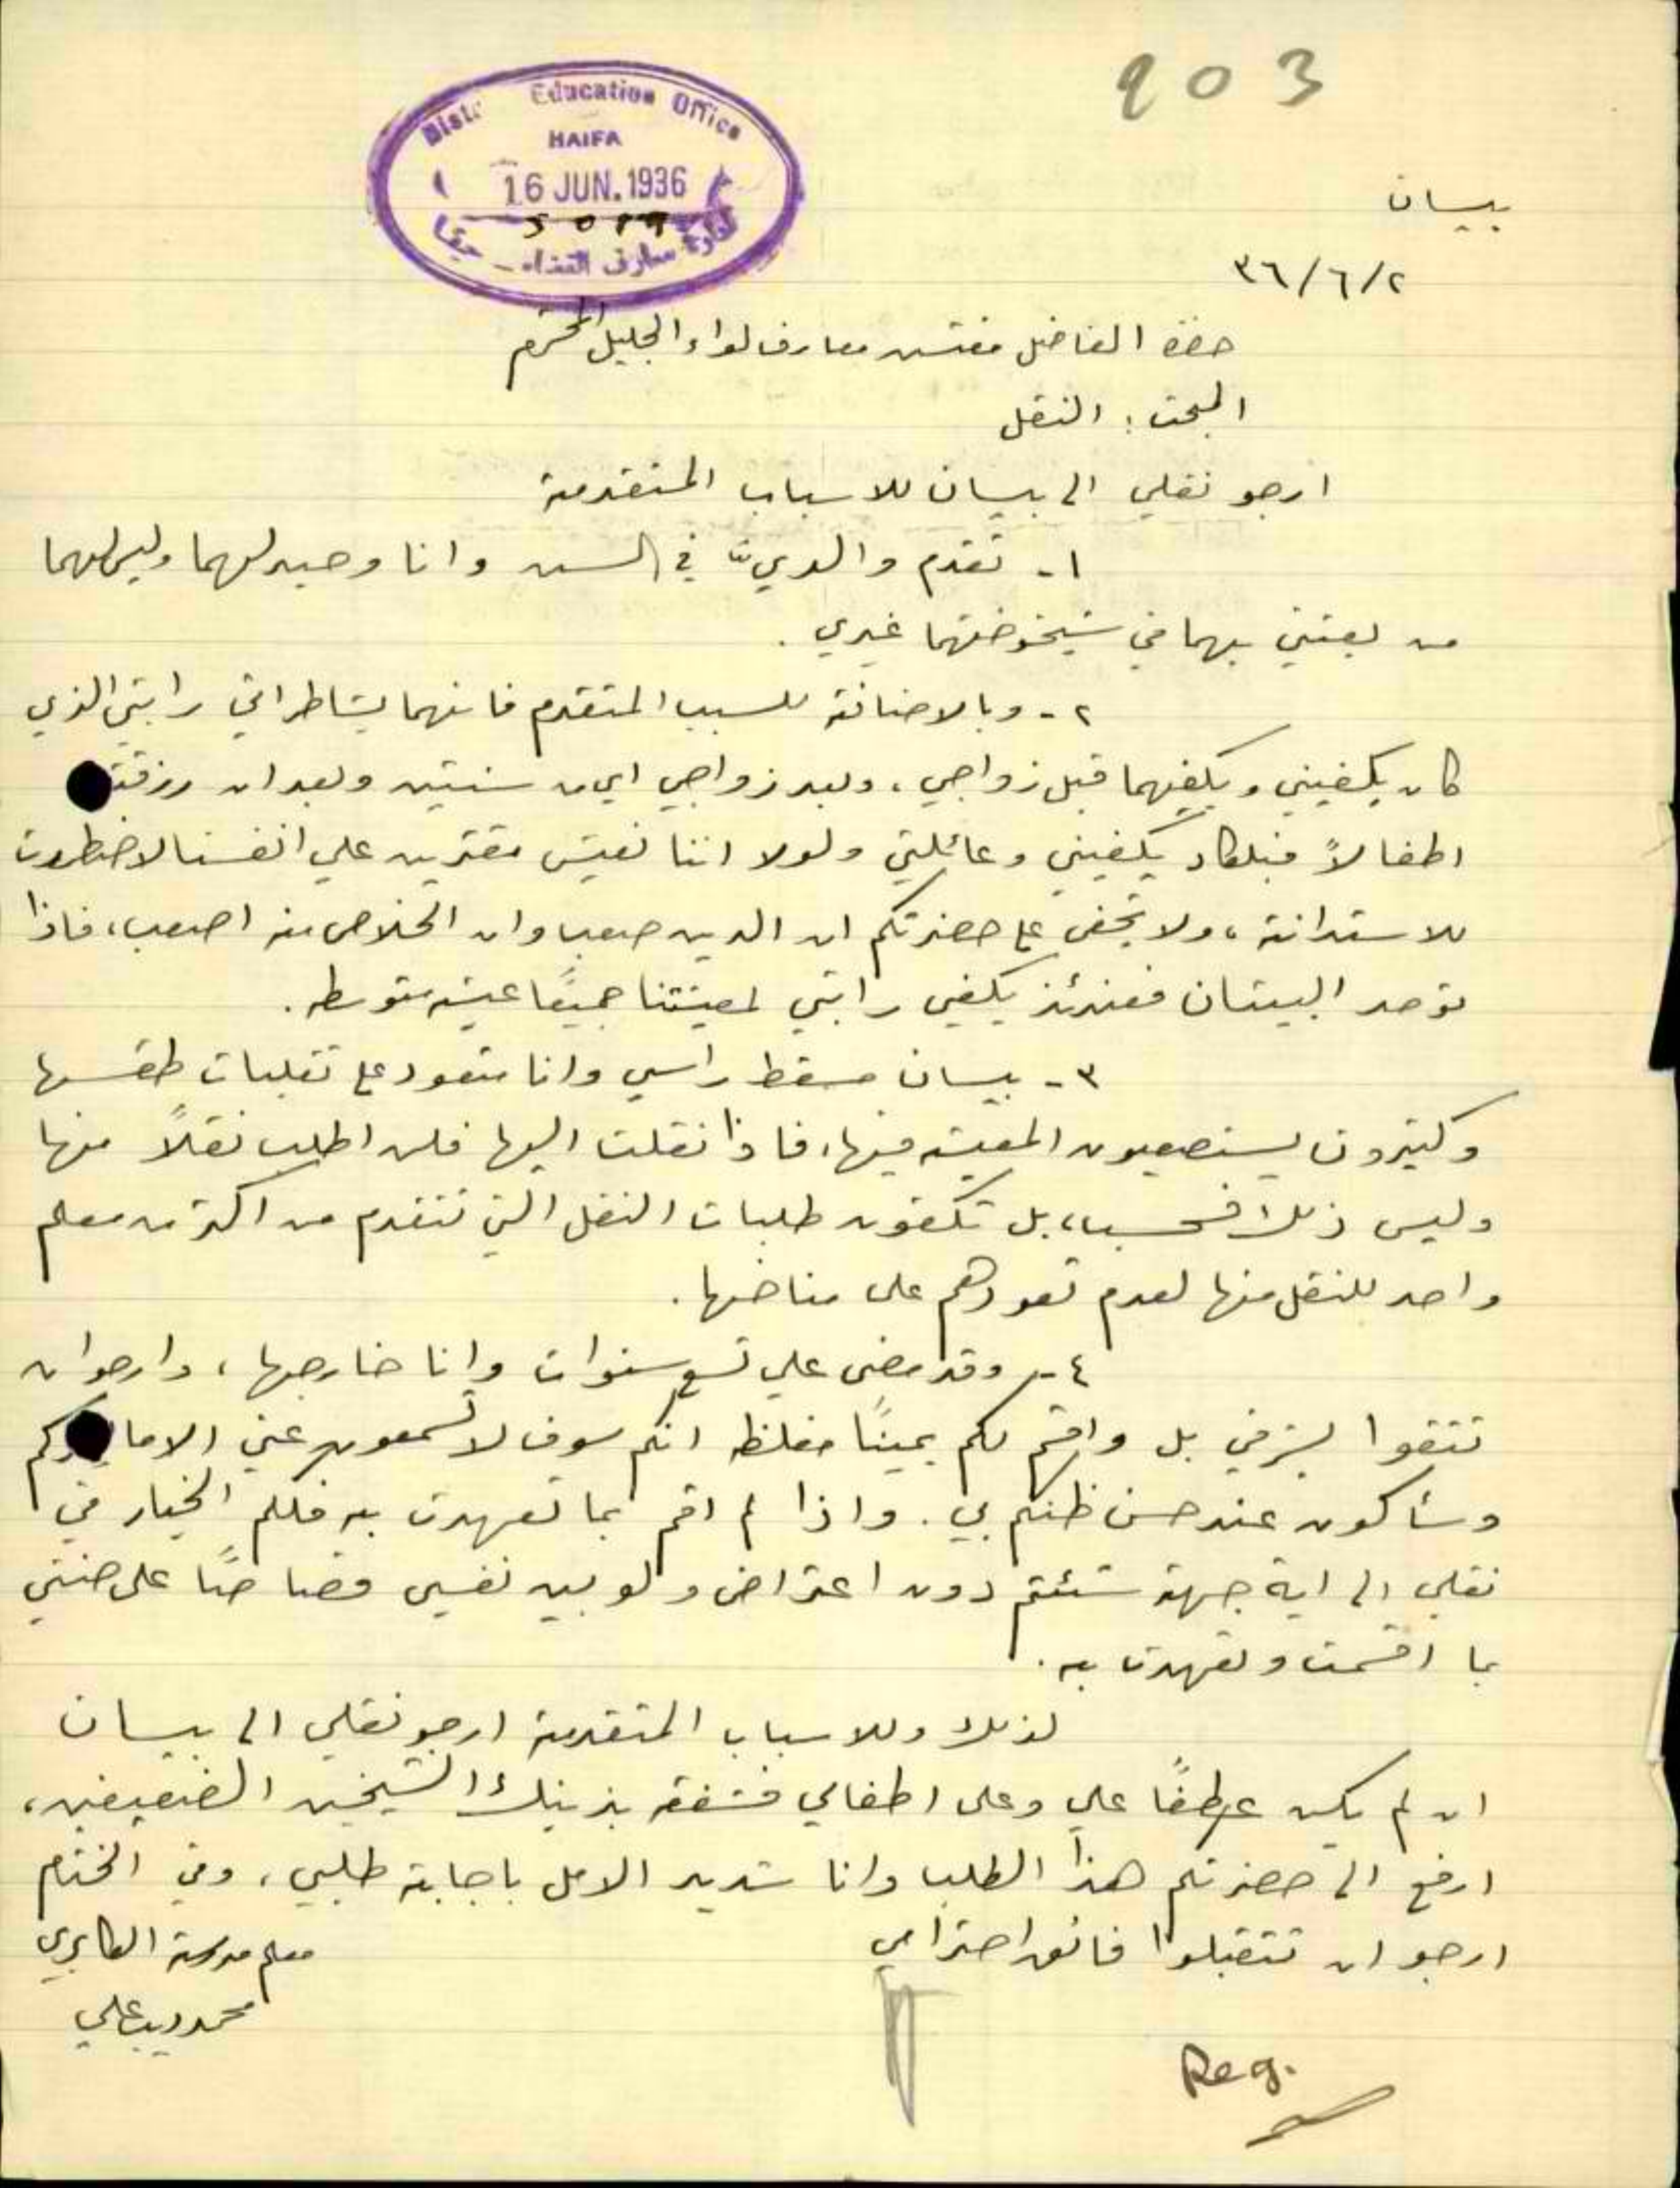 903
Education Office
HAIFA
16 JUN. 1936
بيسان
٢/٦/٣٦
حضرة الفاضل مفتش معارف لواء الجليل المحترم
المبحث: النقل
ارجو نقلي الى بيسان للاسباب المتقدمة
١- تقدم والديّ في السن وانا وحيد لهما وليس لهما
من يعتني بهما في شيخوختهما غيري.
٢- وبالاضافة للسبب المتقدم فانهما يشاطراني راتبي الذي
كان يكفيني ويكفيهما قبل زواجي، وبعد زواجي اي من سنتين وبعد ان رزقت
اطفالاً فبالكاد يكفيني وعائلتي ولولا اننا نعيش مقترين على انفسنا لاضطررت
للاستدانة، ولا يخفى على حضرتكم ان الدين صعب وان الخلاص منه اصعب، فاذا
توحد البيتان فعندئذ يكفي راتبي لمعيشتنا جميعًا عيشة متوسطه.
٣- بيسان مسقط راسي وانا متعود على تقلبات طقسها
وكثيرون يستصعبون المعيشه فيها، فاذا نقلت اليها فلن اطلب نقلاً منها
وليس ذلك فحسب، بل تكفون طلبات النقل التي تتقدم من اكثر من معلم
واحد للنقل منها لعدم تعودهم على مناخها.
٤- وقد مضى علي تسع سنوات وانا خارجها، وارجو ان
تثقوا بشرفي بل واقسم لكم يمينًا مغلظه انكم سوف لا تسمعون عني الا ما يسركم
وسأكون عند حسن ظنكم بي. واذا لم اقم بما تعهدت به فلكم الخيار في
نقلي الى اية جهة شئتم دون اعتراض ولو بيني وبين نفسي قصاصًا على حنثي
بما اقسمت وتعهدت به.
لذلك وللاسباب المتقدمة ارجو نقلي الى بيسان
ان لم يكن عطفًا علي وعلى اطفالي فشفقه بذينك الشيخين الضعيفين،
ارفع الى حضرتكم هذا الطلب وانا شديد الامل باجابة طلبي، وفي الختام
ارجو ان تتقبلوا فائق احترامي
معلم مدرسة الكابري
محمد ديب علي
Reg.